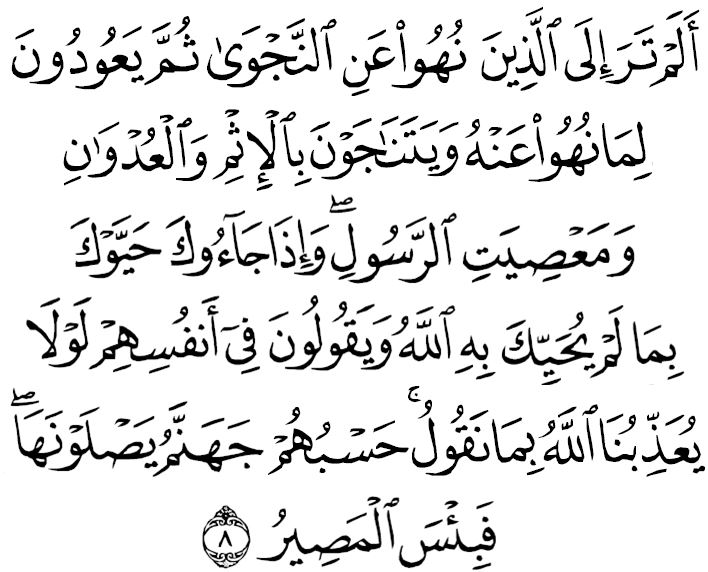 أَلَمْ تَرَ إِلَى ٱلَّذِينَ نُهُوا۟ عَنِ ٱلنَّجْوَىٰ ثُمَّ يَعُودُونَ
لِمَا نُهُوا۟ عَنْهُ وَيَتَنَٰجَوْنَ بِٱلْإِثْمِ وَٱلْعُدْوَٰنِ
وَمَعْصِيَتِ ٱلرَّسُولِ ۖ وَإِذَا جَآءُوكَ حَيَّوْكَ
بِمَا لَمْ يُحَيِّكَ بِهِ ٱللَّهُ وَيَقُولُونَ فِىٓ أَنفُسِهِمْ لَوْلَا
يُعَذِّبُنَا ٱللَّهُ بِمَا نَقُولُ ۚ حَسْبُهُمْ جَهَنَّمُ يَصْلَوْنَهَا ۖ
فَبِئْسَ ٱلْمَصِيرُ ٨